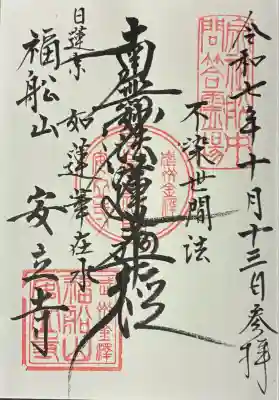 令和七年十月十三日奉拝
不染世間法
南無妙法蓮華経
如蓮華在水
日蓮宗
福船山 安立寺
問答霊場
福船山
安立寺